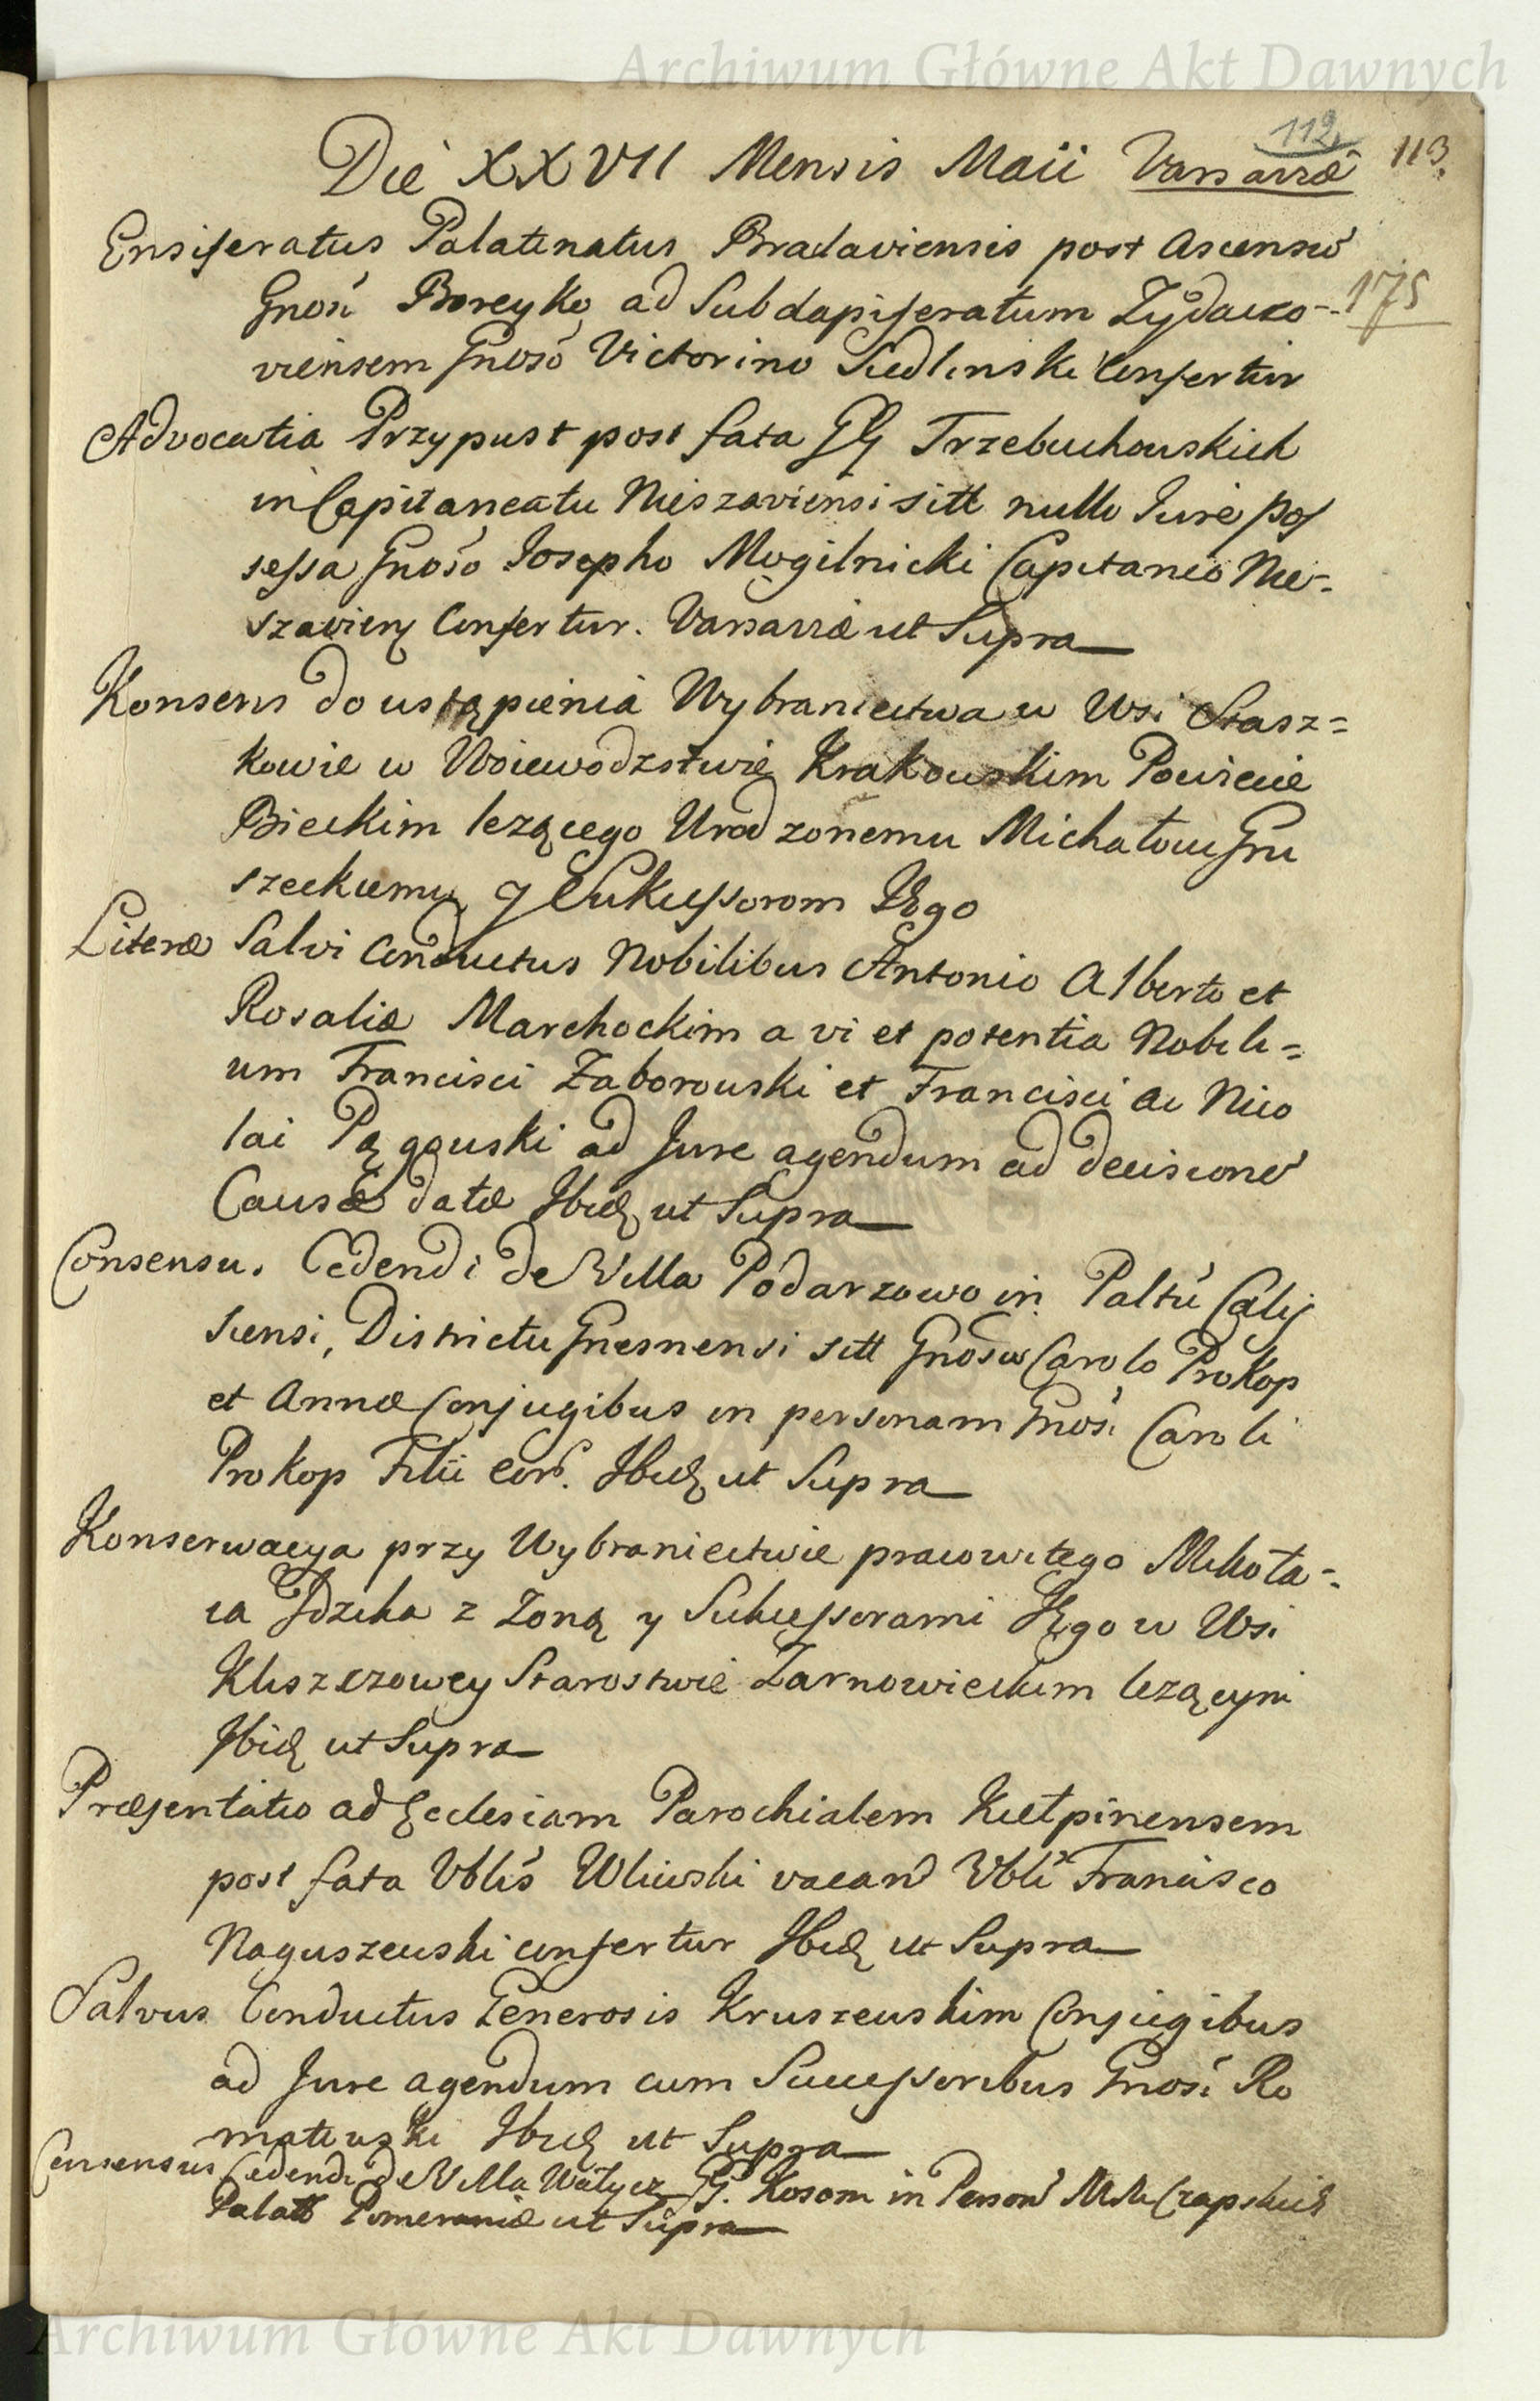 Archiwum Główne Akt Dawnych
112
113.
Die XXVII Mensis Maii Varsaviæ
Ensiferatus Palatinatus Braclaviensis post Ascensū
175
Gnosi Boreyko ad Subdapiferatum Zydaczo-
viensem Gnoso Victorino Siedlinski Confertur
Advocatia Przypust post fata GG Trzebuchowskich
in Capitaneatu Nieszaviensi sitt nullo Jure pos
sessa Gnoso Josepho Mogilnicki Capitaneo Nie-
szavien Confertur. Varsaviæ ut Supra
Konsens do ustąpienia Wybraniectwa w Wsi Stasz=
kowie w Woiewodzstwie Krakowskim Powiecie
Bieckim lezącego Urodzonemu Michałowi Gru
szeckiemu y Sukcessorom Jego
Literæ Salvi Conductus Nobilibus Antonio Alberto et
Rosaliæ Marchockim a vi et potentia Nobili=
um Francisci Zaborowski et Francisci ac Nico
lai Pągowski ad Jure agendum ad decisionē
Causæ datæ Ibid ut Supra
Consensus Cedendi de Villa Podarzowo in Paltū Calis
siensi, Districtu Gnesnensi sitt Gnosis Carolo Prokop
et Annæ Conjugibus in personam Gnosi Caroli
Prokop Filii eor. Ibid ut Supra
Konserwacya przy Wybraniectwie pracowitego Mikoła-
ia Idzika z Zoną y Sukcessorami Jego w Wsi
Kliszczowey Starostwie Zarnowieckim lezącym
Ibid ut Supra
Præsentatio ad Ecclesiam Parochialem Kiełpinensem
post fata Vblis Uliewski vacan Vbli Francisco
Naguszewski confertur Ibid ut Supra
Salvus Conductus Generosis Kruszewskim Conjugibus
ad Jure agendum cum Successoribus Gnosi Ro
matowski Ibid ut Supra
Consensus Cedendi de Villa Wałycz G. Kosom in Person MM Czapskich
Palatt Pomeraniæ ut Supra
Archiwum Główne Akt Dawnych